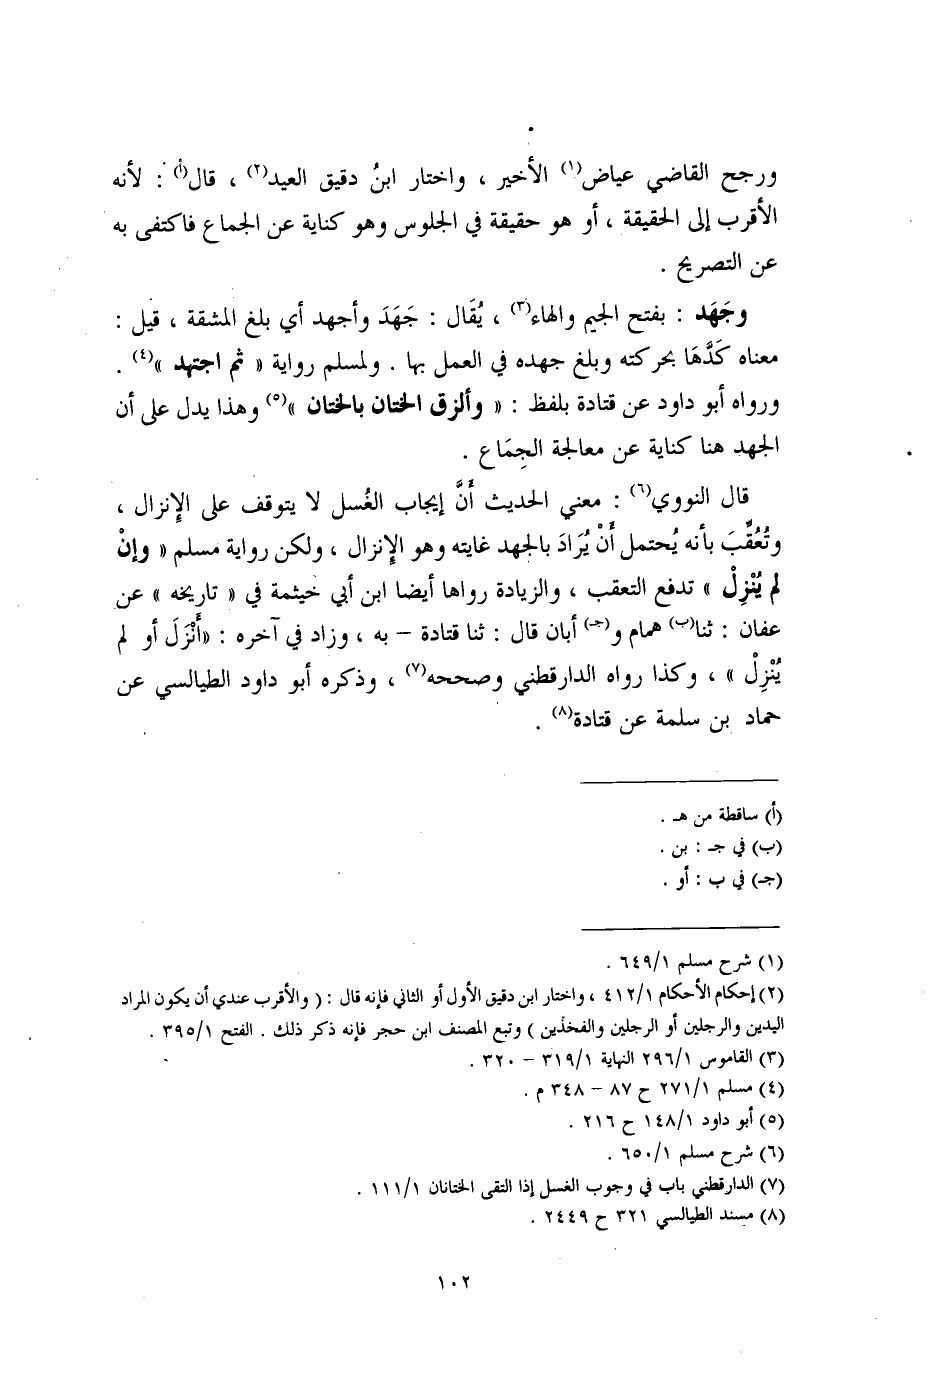 ورجح القاضي عياض(١) الأخير ، واختار ابنُ دقيق العيد(٢) ، قال(أ) : لأنه
الأقرب إلى الحقيقة ، أو هو حقيقة في الجلوس وهو كناية عن الجماع فاكتفى به
عن التصريح .
وجَهَد : بفتح الجيم والهاء(٣) ، يُقَال : جَهَدَ وأجهد أي بلغ المشقة ، قيل :
معناه كَدَّهَا بحركته وبلغ جهده في العمل بها . ولمسلم رواية « ثم اجتهد »(٤) .
ورواه أبو داود عن قتادة بلفظ : « وألزق الختان بالختان »(٥) وهذا يدل على أن
الجهد هنا كناية عن معالجة الجِمَاع .
قال النووي(٦) : معني الحديث أَنَّ إيجاب الغُسل لا يتوقف على الإنزال ،
وتُعُقِّبَ بأنه يُحتمل أَنْ يُرَادَ بالجهد غايته وهو الإنزال ، ولكن رواية مسلم « وإنْ
لم يُنْزِلْ » تدفع التعقب ، والزيادة رواها أيضا ابن أبي خيثمة في « تاريخه » عن
عفان : ثنا(ب) همام و(جـ) أبان قال : ثنا قتادة – به ، وزاد في آخره : «أَنْزَلَ أو لم
يُنْزِلْ » ، وكذا رواه الدارقطني وصححه(٧) ، وذكره أبو داود الطيالسي عن
حماد بن سلمة عن قتادة(٨) .
(أ) ساقطة من هـ .
(ب) في جـ : بن .
(جـ) في ب : أو .
(١) شرح مسلم ٦٤٩/١ .
(٢) إحكام الأحكام ٤١٢/١ ، واختار ابن دقيق الأول أو الثاني فإنه قال : ( والأقرب عندي أن يكون المراد
اليدين والرجلين أو الرجلين والفخذين ) وتبع المصنف ابن حجر فإنه ذكر ذلك . الفتح ٣٩٥/١ .
(٣) القاموس ٢٩٦/١ النهاية ٣١٩/١ – ٣٢٠ .
(٤) مسلم ٢٧١/١ ح ٨٧ – ٣٤٨ م .
(٥) أبو داود ١٤٨/١ ح ٢١٦ .
(٦) شرح مسلم ٦٥٠/١ .
(٧) الدارقطني باب في وجوب الغسل إذا التقى الختانان ١١١/١ .
(٨) مسند الطيالسي ٣٢١ ح ٢٤٤٩ .
١٠٢